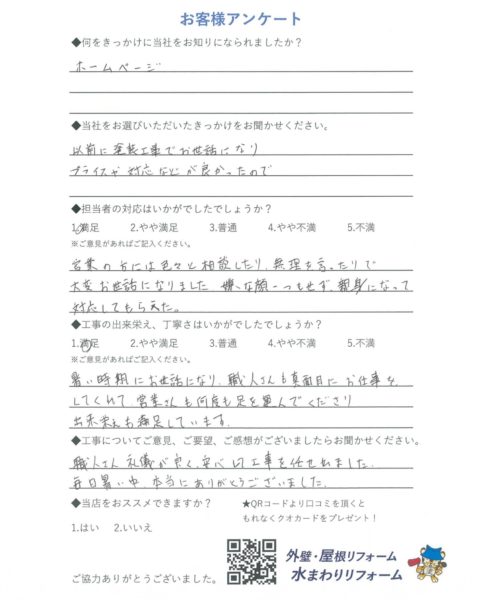 お客様アンケート
◆何をきっかけに当社をお知りになられましたか？
ホームページ
◆当社をお選びいただいたきっかけをお聞かせください。
以前に塗装工事でお世話になり
プライスや対応などが良かったので
◆担当者の対応はいかがでしたでしょうか？
1.満足 2.やや満足 3.普通 4.やや不満 5.不満
※ご意見があればご記入ください。
営業の方には色々と相談したり、無理を言ったりで
大変お世話になりました 嫌な顔一つもせず、親身になって
対応してもらえた。
◆工事の出来栄え、丁寧さはいかがでしたでしょうか？
1.満足 2.やや満足 3.普通 4.やや不満 5.不満
※ご意見があればご記入ください。
暑い時期にお世話になり、職人さんも真面目にお仕事を
してくれて、営業さんも何度も足を運んでくださり
出来栄えも満足しています。
◆工事についてご意見、ご要望、ご感想がございましたらお聞かせください。
職人さん礼儀が良く、安心して工事を任せ出ました。
毎日暑い中、本当にありがとうございました。
◆当店をおススメできますか？
1.はい 2.いいえ
★QRコードより口コミを頂くと
もれなくクオカードをプレゼント！
外壁・屋根リフォーム
水まわりリフォーム
ご協力ありがとうございました。